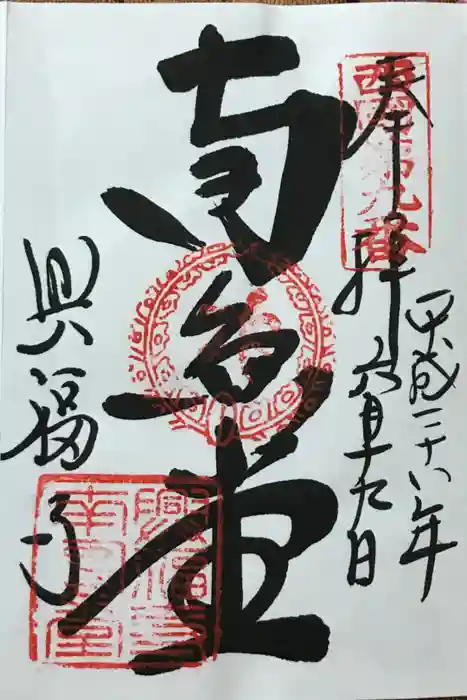 奉拝
平成二十八年
六月十九日
南円堂
興福寺
西国第九番
興福寺
南円堂